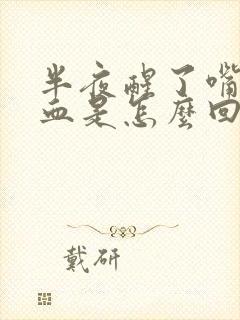 半夜醒了嘴
血是怎麼回
戴研